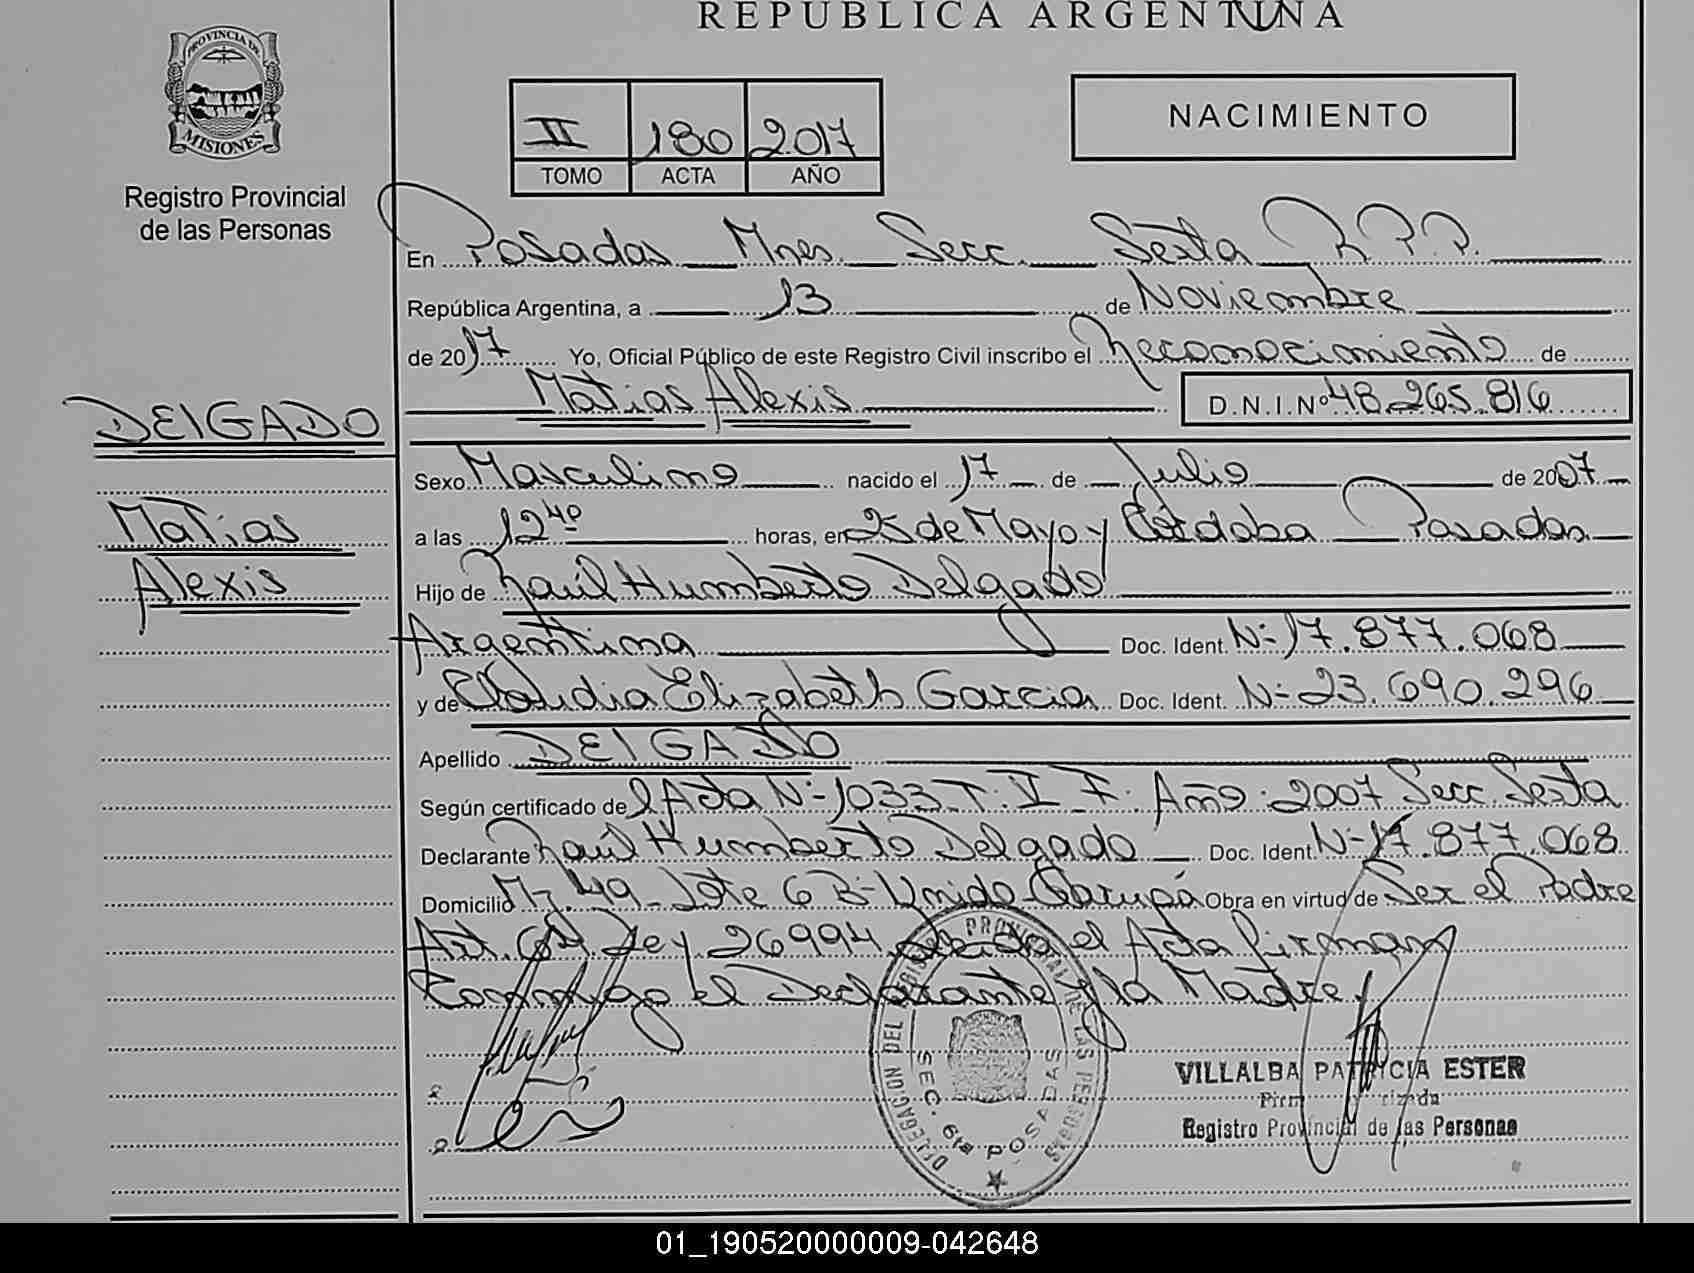 REPUBLICA ARGENTINA
PROVINCIA DE
MISIONES
Registro Provincial
de las Personas
II 180 2017
TOMO ACTA AÑO
NACIMIENTO
En Posadas Mnes. Secc. Sexta R.P.P.
República Argentina, a 13 de Noviembre
de 2017 Yo, Oficial Público de este Registro Civil inscribo el Reconocimiento de
Matias Alexis D.N.I.Nº 48.265.816
DELGADO
Matias
Alexis
Sexo Masculino nacido el 17 de Julio de 2007
a las 12 40 horas, en 25 de Mayo y Córdoba Posadas
Hijo de Raúl Humberto Delgado
Argentina Doc. Ident. Nº 17.877.068
y de Claudia Elizabeth Garcia Doc. Ident. Nº 23.690.296
Apellido DELGADO
Según certificado del Acta Nº 1033 T. V F. Año 2007 Secc. Sexta
Declarante Raúl Humberto Delgado Doc. Ident. Nº 17.877.068
Domicilio Mz. 49 Lote 6 Bº Unido Garupá Obra en virtud de Ser el Padre
Art. Ley 26994 el Acta firman
Conmigo el Declarante y la Madre.
DELEGACION DEL REGISTRO PROVINCIAL DE LAS PERSONAS
SEC. 6ta POSADAS
VILLALBA PATRICIA ESTER
Registro Provincial de las Personas
01_190520000009-042648